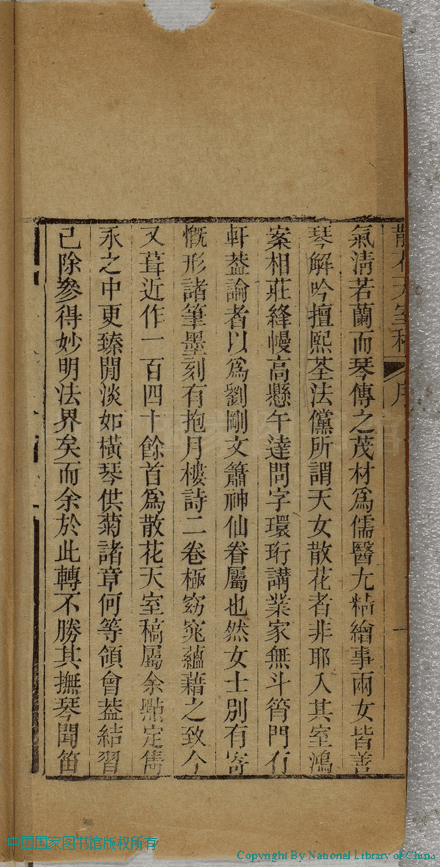 散花天室稿 序 一
氣淸若蘭而琴傳之茂材爲儒醫尢精繪事兩女皆善
琴解吟擅熙荃法黨所謂天女散花者非耶入其室鴻
案相莊絳幔高懸午達問字環珩講業家無斗筲門有
軒葢論者以爲劉剛文簫神仙眷屬也然女士別有寄
慨形諸筆墨刻有抱月樓詩二卷極窈窕蘊藉之致今
又葺近作一百四十餘首爲散花天室稿屬余㸃定雋
永之中更臻閒淡如橫琴供菊諸章何等領會葢結習
已除參得妙明法界矣而余於此轉不勝其撫琴聞笛
中国国家图书馆版权所有
Copyright By National Library of China